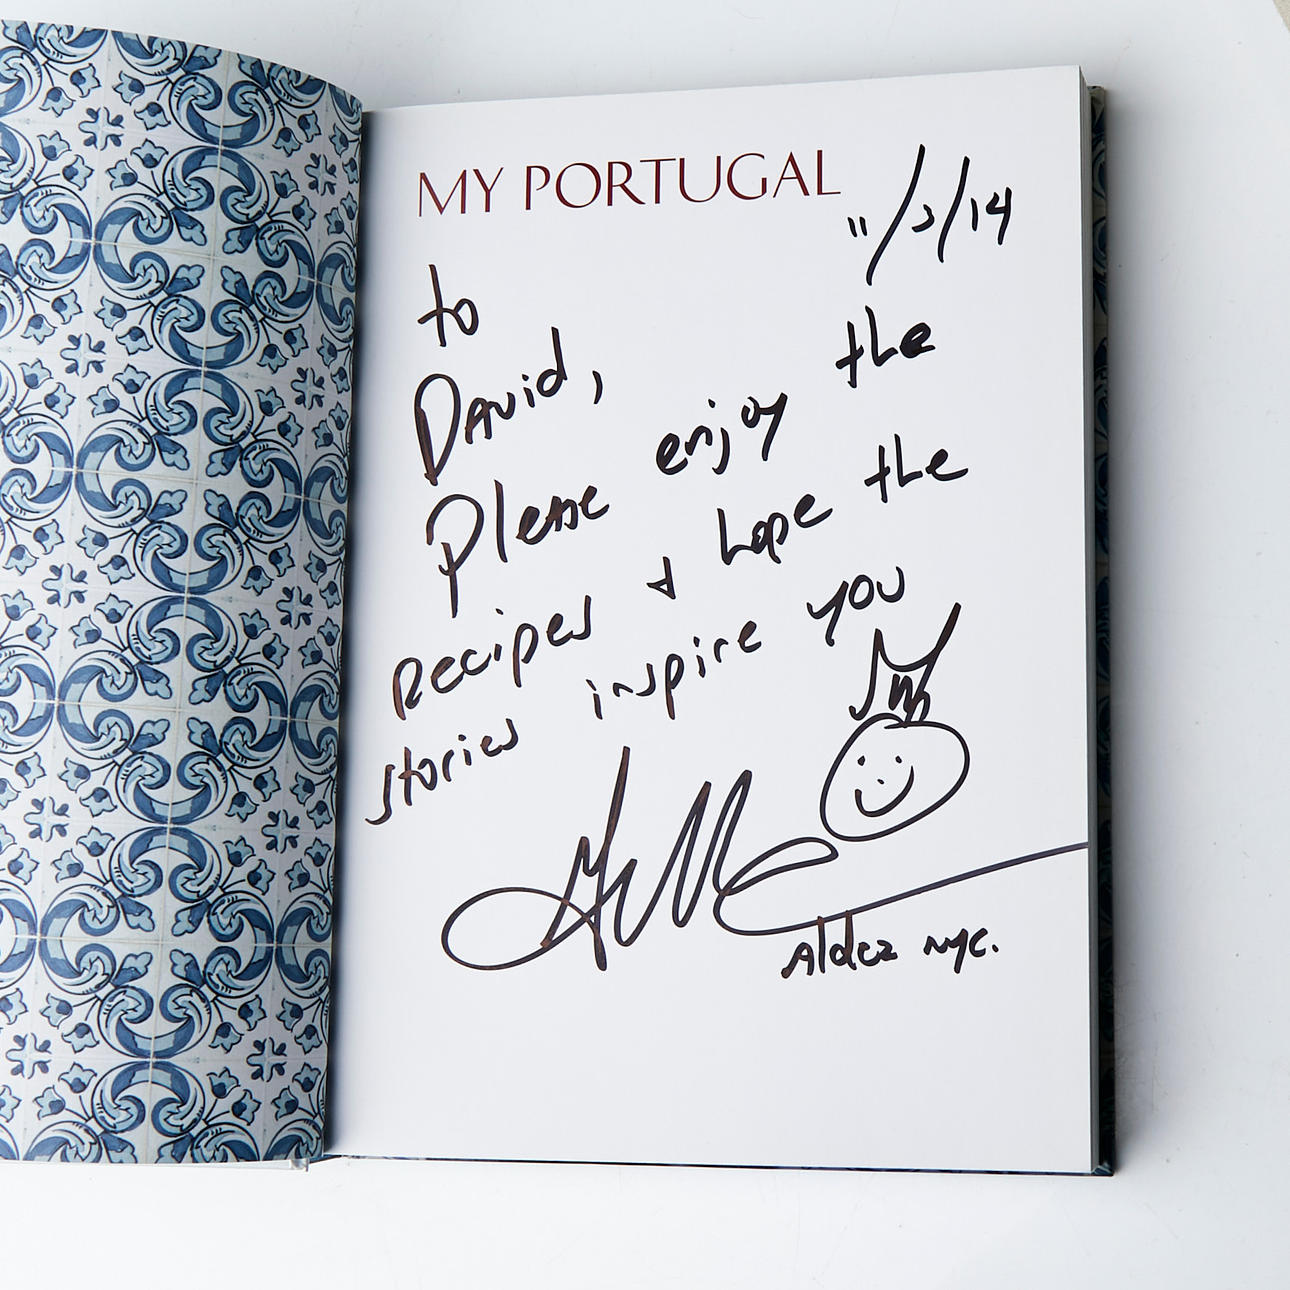 MY PORTUGAL
11/2/14
to
David,
Please enjoy the
Recipes + hope the
stories inspire you
Aldea NYC.